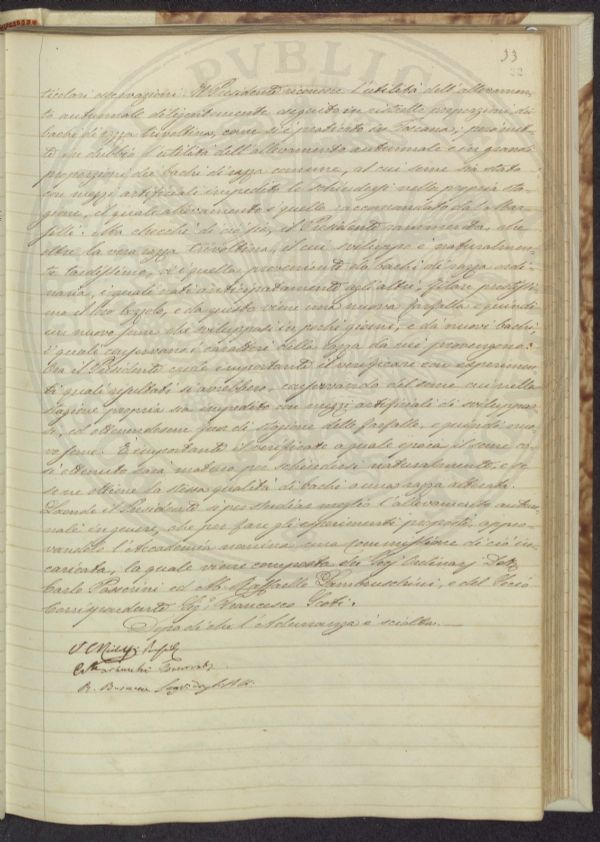 33
22
ticolari osservazioni. Il Presidente riconosce l'utilità dell'allevamen-
to autunnale diligentemente eseguito in ristrette proporzioni dei
bachi di razza trivoltina, come si è praticato in Toscana; però met-
te in dubbio l'utilità dell'allevamento autunnale e in grandi
proporzioni dei bachi di razza comune, al cui seme sia stato
con mezzi artificiali impedito lo schiudersi nella propria sta-
gione, il quale allevamento è quello raccomandato dal
Ma checchè di ciò sia, il Presidente rammenta, che
oltre la vera razza trivoltina, il cui sviluppo è naturalmen-
te tardissimo, vi è quella proveniente da bachi di razza ordi-
naria, i quali nati anticipatamente agli altri, filano prestissi-
mo il loro bozzolo, e da questo viene una nuova farfalla e quindi
un nuovo seme che sviluppasi in pochi giorni, e dà nuovi bachi
i quali conservano i caratteri della razza da cui provengono.
il Presidente crede importante il verificare con esperimen-
ti quali risultati si avrebbero, conservando del seme cui nella
stagione propria sia impedito con mezzi artificiali di sviluppar-
si, ed ottenendosene fuor di stagione delle farfalle, e quindi nuo-
vo seme. È importante il verificare a quale epoca il seme co-
sì ottenuto sarà maturo per schiudersi naturalmente, e se
se ne ottiene la stessa qualità di bachi o una razza
Laonde il Presidente sì per studiar meglio l'allevamento autun-
nale in genere, che per fare gli esperimenti proposti, appro-
vandolo l'Accademia nomina una Commissione di ciò in-
caricata, la quale viene composta dei Sigi. Ordinarj Dott.
Carlo Passerini ed Ab. Raffaello Lambruschini, e del Socio
Corrispondente Sig. Francesco Scoti.
Dopo di che l'Adunanza è sciolta.